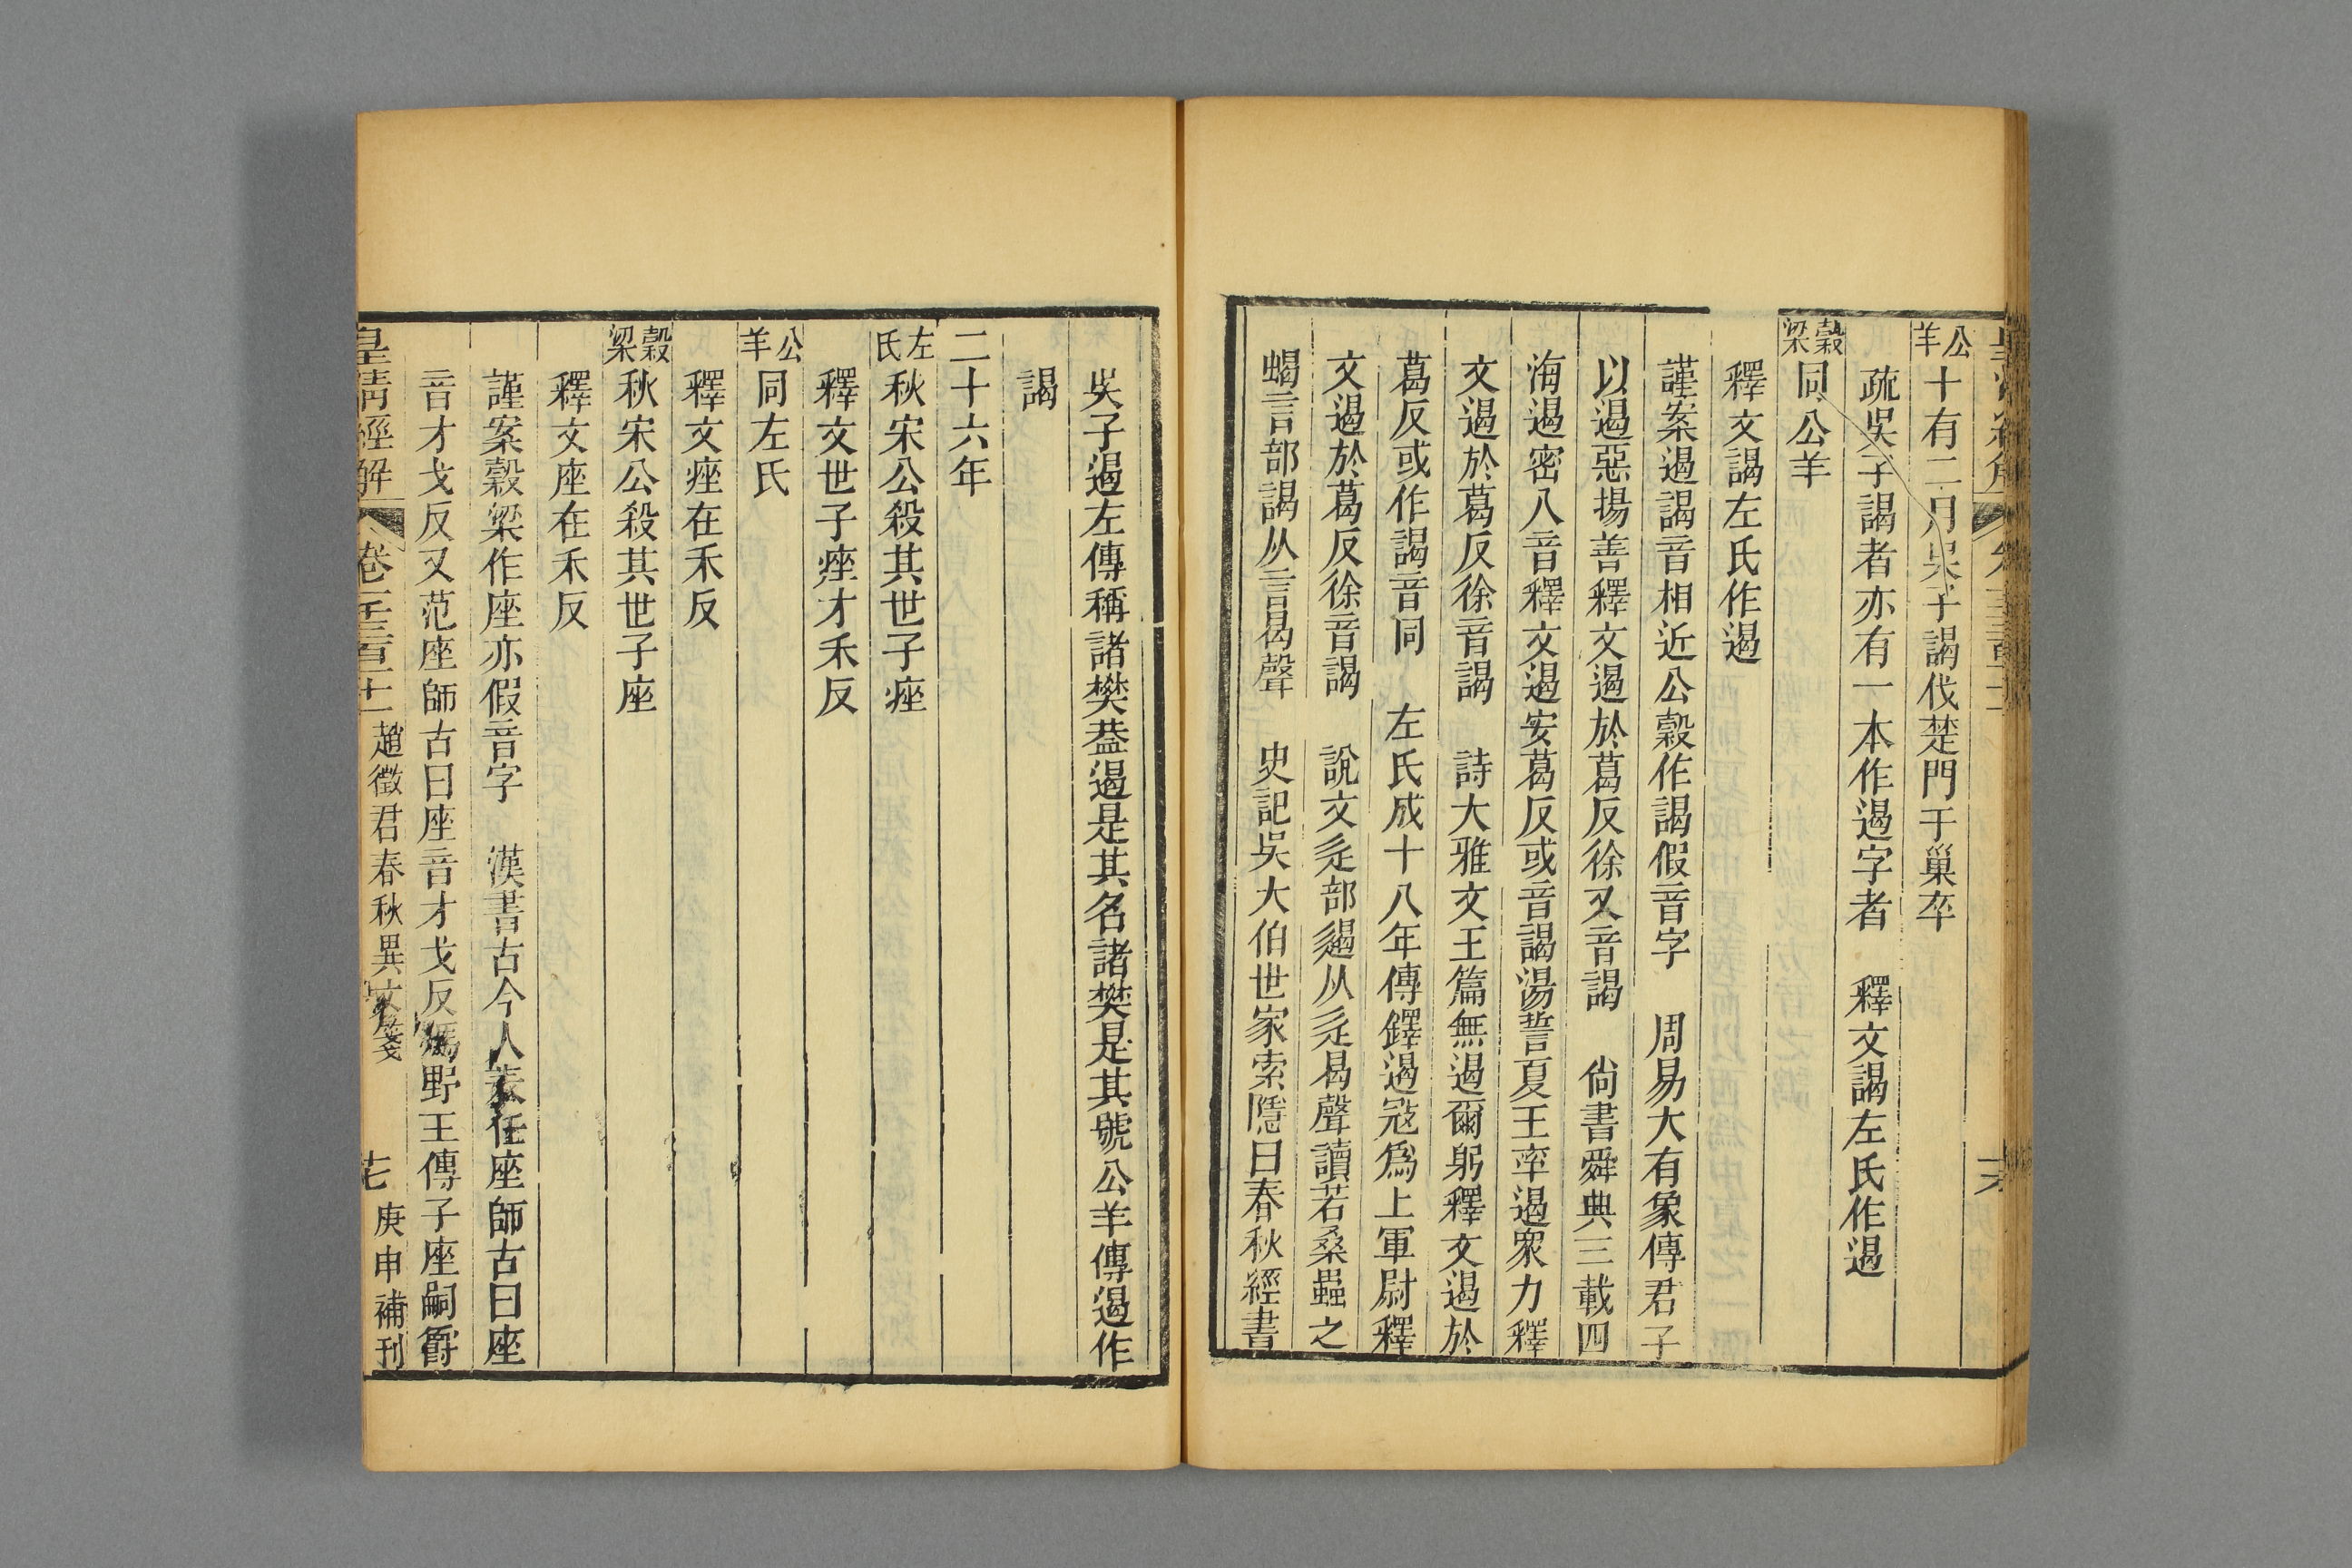 公羊十有二月吳子謁伐楚門于巢卒
疏吳子謁者亦有一本作遏字者　釋文謁左氏作遏
穀梁同公羊
釋文謁左氏作遏
謹案遏謁音相近公穀作謁假音字　周易大有象傳君子
以遏惡揚善釋文遏於葛反徐又音謁　尙書舜典三載四
海遏密八音釋文遏安葛反或音謁湯誓夏王率遏衆力釋
文遏於葛反徐音謁　詩大雅文王篇無遏爾躬釋文遏於
葛反或作謁音同　左氏成十八年傳鐸遏寇爲上軍尉釋
文遏於葛反徐音謁　說文辵部遏从辵曷聲讀若桑蟲之
蝎言部謁从言曷聲　史記吳大伯世家索隱曰春秋經書
吳子遏左傳稱諸樊葢遏是其名諸樊是其號公羊傳遏作
謁
二十六年
左氏秋宋公殺其世子痤
釋文世子痤才禾反
公羊同左氏
釋文痤在禾反
穀梁秋宋公殺其世子座
釋文座在禾反
謹案穀梁作座亦假音字　漢書古今人表任座師古曰座
音才戈反又范座師古曰座音才戈反馮野王傳子座嗣爵
皇清經解　卷一千三百十一　趙徵君春秋異文箋　七　庚申補刊